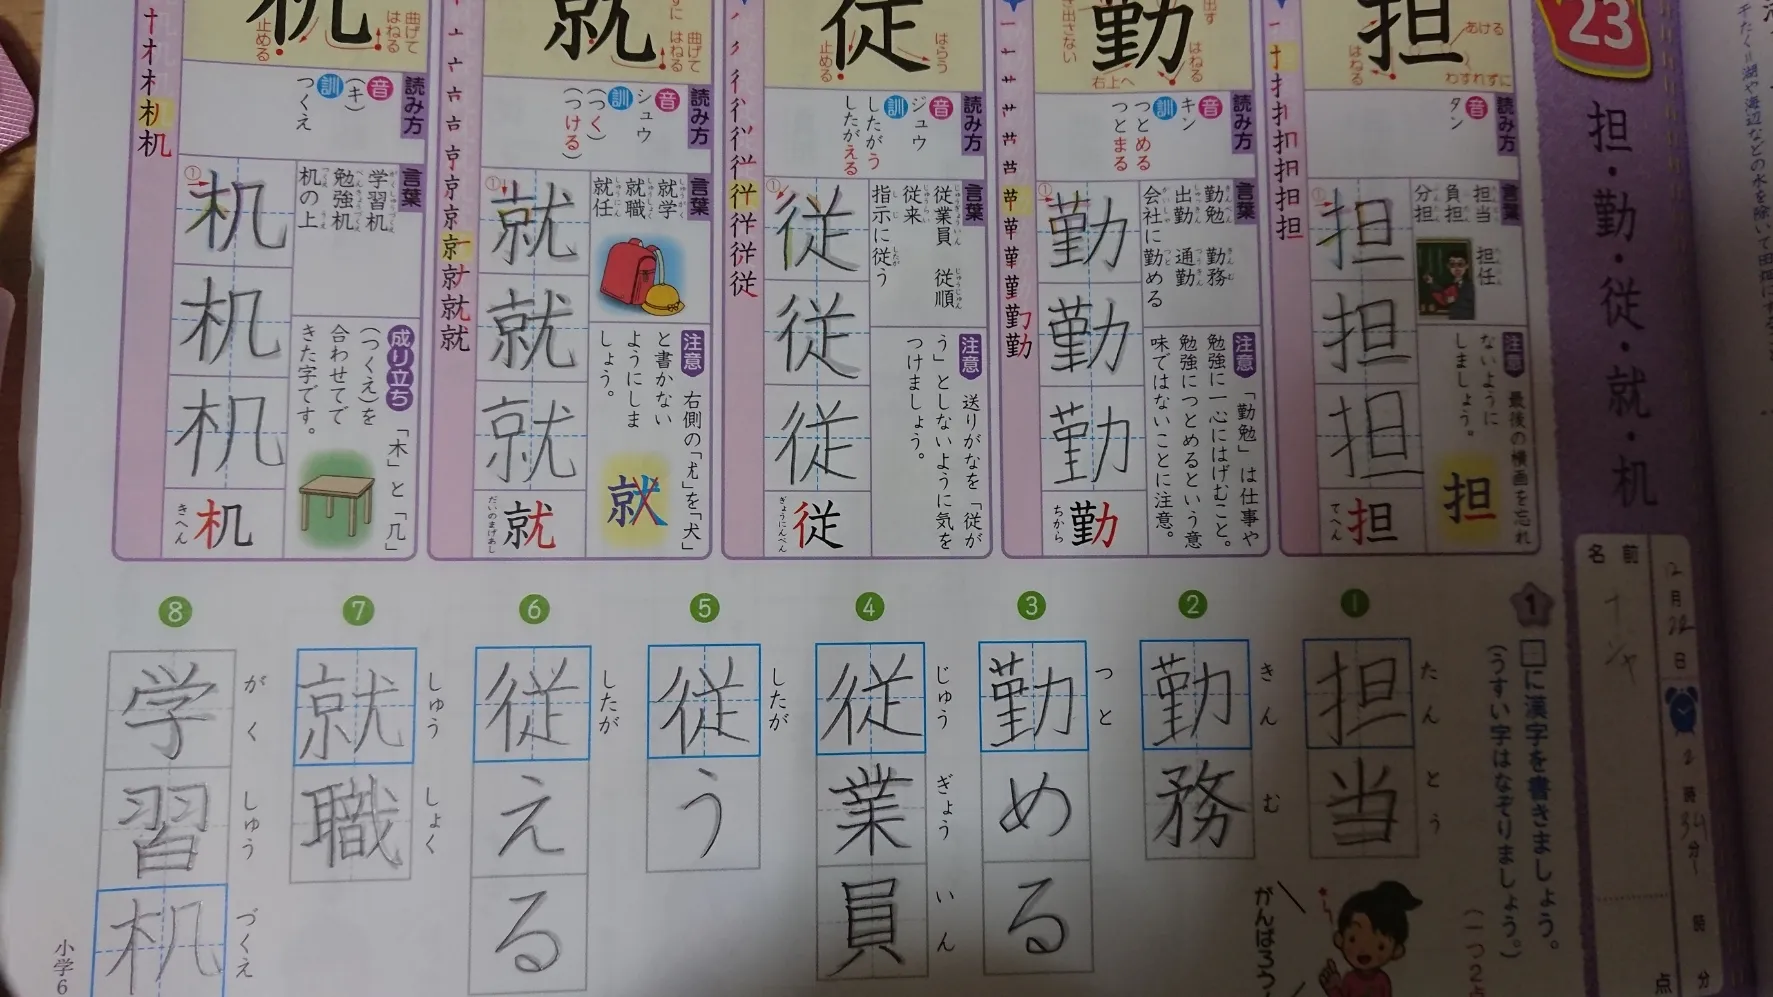 23
担・勤・従・就・机
名前
2月22日
時34分～
時 分
点
担
あける
はねる
わすれずに
読み方
音 タン
言葉
担当 担任
負担
分担
注意 最後の横画を忘れ
ないように
しましょう。
担
担
担
担
担
てへん
勤
はねる
右上へ
読み方
音 キン
訓 つとめる
つとまる
言葉
勤勉 勤務
出勤 通勤
会社に勤める
注意 「勤勉」は仕事や
勉強に一心にはげむこと。
勉強につとめるという意
味ではないことに注意。
勤
勤
勤
勤
ちから
従
はらう
止める
読み方
音 ジュウ
訓 したがう
したがえる
言葉
従業員 従順
従来
指示に従う
注意 送りがなを「従が
う」としないように気を
つけましょう。
従
従
従
従
ぎょうにんべん
就
曲げて
はねる
止める
読み方
音 シュウ
訓 (つく)
(つける)
言葉
就学
就職
就任
注意 右側の「尤」を「犬」
と書かない
ようにしま
しょう。
就
就
就
就
だいのまげあし
机
曲げて
はねる
止める
読み方
音 (キ)
訓 つくえ
言葉
学習机
勉強机
机の上
成り立ち 「木」と「几」
(つくえ)を
合わせてで
きた字です。
机
机
机
机
きへん
1 □に漢字を書きましょう。
(うすい字はなぞりましょう。)
(一つ2点
1 担当 たんとう
2 勤務 きんむ
3 勤める つと
4 従業員 じゅうぎょういん
5 従う したが
6 従える したが
7 就職 しゅうしょく
8 学習机 がくしゅうづくえ
がんばろう!
小学6